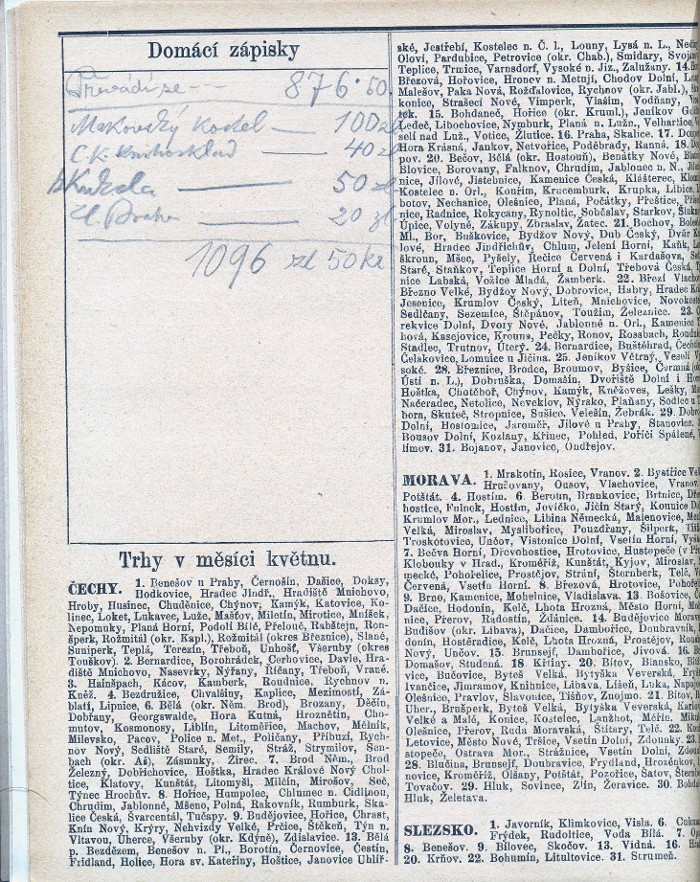 Domácí zápisky
Převádí se -- 876·50
Makovský kostel — 100 zl
C. K. Knihosklad — 40 zl
Kukla — 50 zl
Praha — 20 zl
1096 zl 50 kr
Trhy v měsíci květnu.
ČECHY. 1. Benešov u Prahy, Černošín, Dašice, Doksy,
Hodkovice, Hradec Jindř., Hradiště Mnichovo,
Hroby, Husinec, Chuděnice, Chýnov, Kamýk, Katovice, Ko-
línec, Loket, Lukavec, Luže, Mašťov, Miletín, Mirotice, Mníšek,
Nepomuky, Planá Horní, Podolí Bílé, Přelouč, Rabštejn, Ron-
šperk, Rožmitál (okr. Kapl.), Rožmitál (okres Březnice), Slané,
Suniperk, Teplá, Terezín, Třeboň, Unhošť, Všeruby (okres
Touškov). 2. Bernardice, Borohrádek, Cerhovice, Davle, Hra-
diště Mnichovo, Nasevrky, Nýřany, Říčany, Třeboň, Vrané.
3. Hainšpach, Kácov, Kamberk, Roudnice, Rychnov n.
Kněž. 4. Bezdružice, Chvalšiny, Kaplice, Mezimostí, Zá-
blatí, Lipnice. 6. Bělá (okr. Něm. Brod), Brozany, Děčín,
Dobřany, Georgswalde, Hora Kutná, Hroznětín, Cho-
mutov, Kosmonosy, Liblín, Litoměřice, Machov, Mělník,
Milevsko, Pacov, Police n. Met., Poličany, Příbuzí, Rych-
nov Nový, Sedliště Staré, Semily, Stráž, Strymilov, Sen-
bach (okr. Aš), Zásmuky, Žirec. 7. Brod Něm., Brod
Železný, Dobřichovice, Hoštka, Hradec Králové Nový Chol-
tice, Klatovy, Kunštát, Litomyšl, Milčín, Mirošov, Seč,
Týnec Hrochův. 8. Hořice, Humpolec, Chlumec n. Cidlinou,
Chrudim, Jablonné, Mšeno, Polná, Rakovník, Rumburk, Ska-
lice Česká, Švarcentál, Tučapy. 9. Budějovice, Hořice, Chrast,
Knín Nový, Krýry, Nehvizdy Velké, Prčice, Štěkeň, Týn n.
Vltavou, Uherce, Všeruby (okr. Kdyně), Zdislavice. 13. Bělá
p. Bezdězem, Benešov n. Pl., Borotín, Černovice, Čestín,
Fridland, Holice, Hora sv. Kateřiny, Hoštice, Janovice Uhlíř-
ské, Jestřebí, Kostelec n. Č. l., Louny, Lysá n. L.,
Oloví, Pardubice, Petrovice (okr. Chab.), Smidary,
Teplice, Trmice, Varnsdorf, Vysoké n. Jiz., Zalužany. 14.
Březová, Hořovice, Hronov n. Metují, Chodov Dolní,
Malešov, Paka Nová, Rožďalovice, Rychnov (okr. Jabl.),
konice, Strašecí Nové, Vimperk, Vlaším, Vodňany,
tek. 15. Bohdaneč, Hořice (okr. Kruml.), Jeníkov
Ledeč, Libochovice, Nymburk, Planá n. Lužn., Velhartice
selí nad Luž., Votice, Žlutice. 16. Praha, Skalice. 17.
Hora Krásná, Jankov, Netvořice, Poděbrady, Ranná. 18.
pov. 20. Bečov, Bělá (okr. Hostouň), Benátky Nové,
Blovice, Borovany, Falknov, Chrudim, Jablonec n. N.,
nice, Jílové, Jistebnice, Kamenice Česká, Klášterec,
Kostelec n. Orl., Kouřim, Krucemburk, Krupka, Libice
botov, Nechanice, Olešnice, Planá, Počátky, Přeštice,
nice, Radnice, Rokycany, Rynoltic, Soběslav, Starkov,
Úpice, Volyně, Zákupy, Zbraslav, Žatec. 21. Bochov,
Ml., Bor, Buškovice, Bydžov Nový, Dub Český, Dvůr
lové, Hradec Jindřichův, Chlum, Jelení Horní, Kaňk,
škroun, Mšec, Pyšely, Řečice Červená i Kardašova,
Staré, Staňkov, Teplice Horní a Dolní, Třebová Česká,
nice Labská, Vožice Mladá, Žamberk. 22. Březí
Březno Velké, Bydžov Nový, Dobrovice, Habry, Hradec
Josenice, Krumlov Český, Liteň, Mnichovice,
Sedlčany, Sezemice, Štěpánov, Toužim, Železnice. 23.
rekvice Dolní, Dvory Nové, Jablonné n. Orl., Kamenice
hová, Kasejovice, Krouna, Pečky, Ronov, Rossbach,
Stadlec, Trutnov, Úterý. 24. Bernardice, Buštěhrad,
Čelakovice, Lomnice u Jičína. 25. Jeníkov Větrný, Veselí
soké. 28. Březnice, Brodce, Broumov, Byšice,
Ústí n. L.), Dobruška, Domašín, Dvořiště Dolní i
Hoštka, Chotěboř, Chýnov, Kamýk, Kněževes, Lešky,
Načeradec, Netolice, Neveklov, Nýrsko, Plaňany,
bora, Skuteč, Stropnice, Sušice, Velešín, Žebrák. 29.
Dolní, Hostomice, Jaroměř, Jílové u Prahy, Stanovice,
Bousov Dolní, Kozlany, Křinec, Pohled, Poříčí
límov. 31. Bojanov, Janovice, Ondřejov.
MORAVA. 1. Mrakotín, Rosice, Vranov. 2. Bystřice
Hrušovany, Ousov, Vlachovice,
Potštát. 4. Hostim. 6. Beroun, Brankovice, Brtnice,
hostice, Fulnek, Hostim, Jevíčko, Jičín Starý, Kounice
Krumlov Mor., Lednice, Libina Německá, Malenovice,
Velká, Miroslav, Myslibořice, Pouzdřany, Šilperk,
Troskotovice, Unčov, Vistonice Dolní, Vsetín Horní,
7. Bečva Horní, Dřevohostice, Hrotovice, Hustopeče
Klobouky v Hrad., Kroměříž, Kunštát, Kyjov, Miroslav,
mecké, Pohořelice, Prostějov, Strání, Šternberk, Telč,
Červená, Vsetín Horní. 8. Březová, Hrotovice,
9. Brno, Kamenice, Mohelnice, Vladislava. 13. Bošovice,
Dačice, Hodonín, Kelč, Lhota Hrozná, Město Horní,
nice, Přerov, Radostín, Ždánice. 14. Budějovice
Budišov (okr. Libava), Dačice, Dambořice,
donín, Hostěradice, Kelč, Lhota Hrozná, Prostějov,
Nový, Unčov. 15. Brunsejf, Dambořice, Jivová. 16.
Domašov, Studená. 18. Křtiny. 20. Bítov, Blansko,
vice, Bučovice, Byteš Velká, Bytyška Veverská,
Ivančice, Jimramov, Knihnice, Libava, Líšeň, Luka,
Olešnice, Pravlov, Slavonice, Tišňov, Znojmo. 21.
Uher., Brušperk, Byteš Velká, Bytyška Veverská,
Velké a Malé, Konice, Kostelec, Lanžhot, Měřín,
Olešnice, Přerov, Ruda Moravská, Štítary, Telč. 22.
Letovice, Město Nové, Tršice, Vsetín Dolní, Zdounky. 23.
stopeče, Ostrava Mor., Strážnice, Vsetín Dolní,
28. Blučina, Brunsejf, Doubravice, Frydland, Hrozěnkov,
novice, Kroměříž, Olšany, Potštát, Pozořice, Šatov,
Tovačov. 29. Hluk, Sovinec, Zlín, Žeravice. 30.
Hluk, Želetava.
SLEZSKO. 1. Javorník, Klimkovice, Visla. 6.
Frýdek, Rudoltice, Voda Bílá. 7.
8. Benešov. 9. Bílovec, Skočov. 13. Vidná. 16.
20. Krňov. 22. Bohumín, Litultovice. 31. Strumeň.